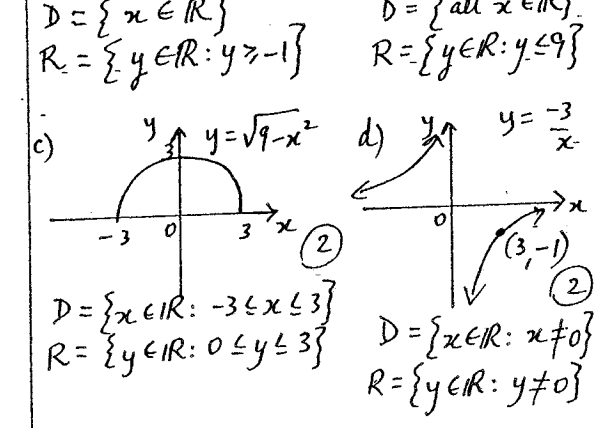 D = { x ∈ ℝ }
R = { y ∈ ℝ : y ≥ -1 }
D = { all x ∈ ℝ }
R = { y ∈ ℝ : y ≤ 9 }
c)
y
y = √9-x²
3
-3 0 3 x
2
D = { x ∈ ℝ : -3 ≤ x ≤ 3 }
R = { y ∈ ℝ : 0 ≤ y ≤ 3 }
d)
y
y = -3/x
0 x
(3, -1)
2
D = { x ∈ ℝ : x ≠ 0 }
R = { y ∈ ℝ : y ≠ 0 }